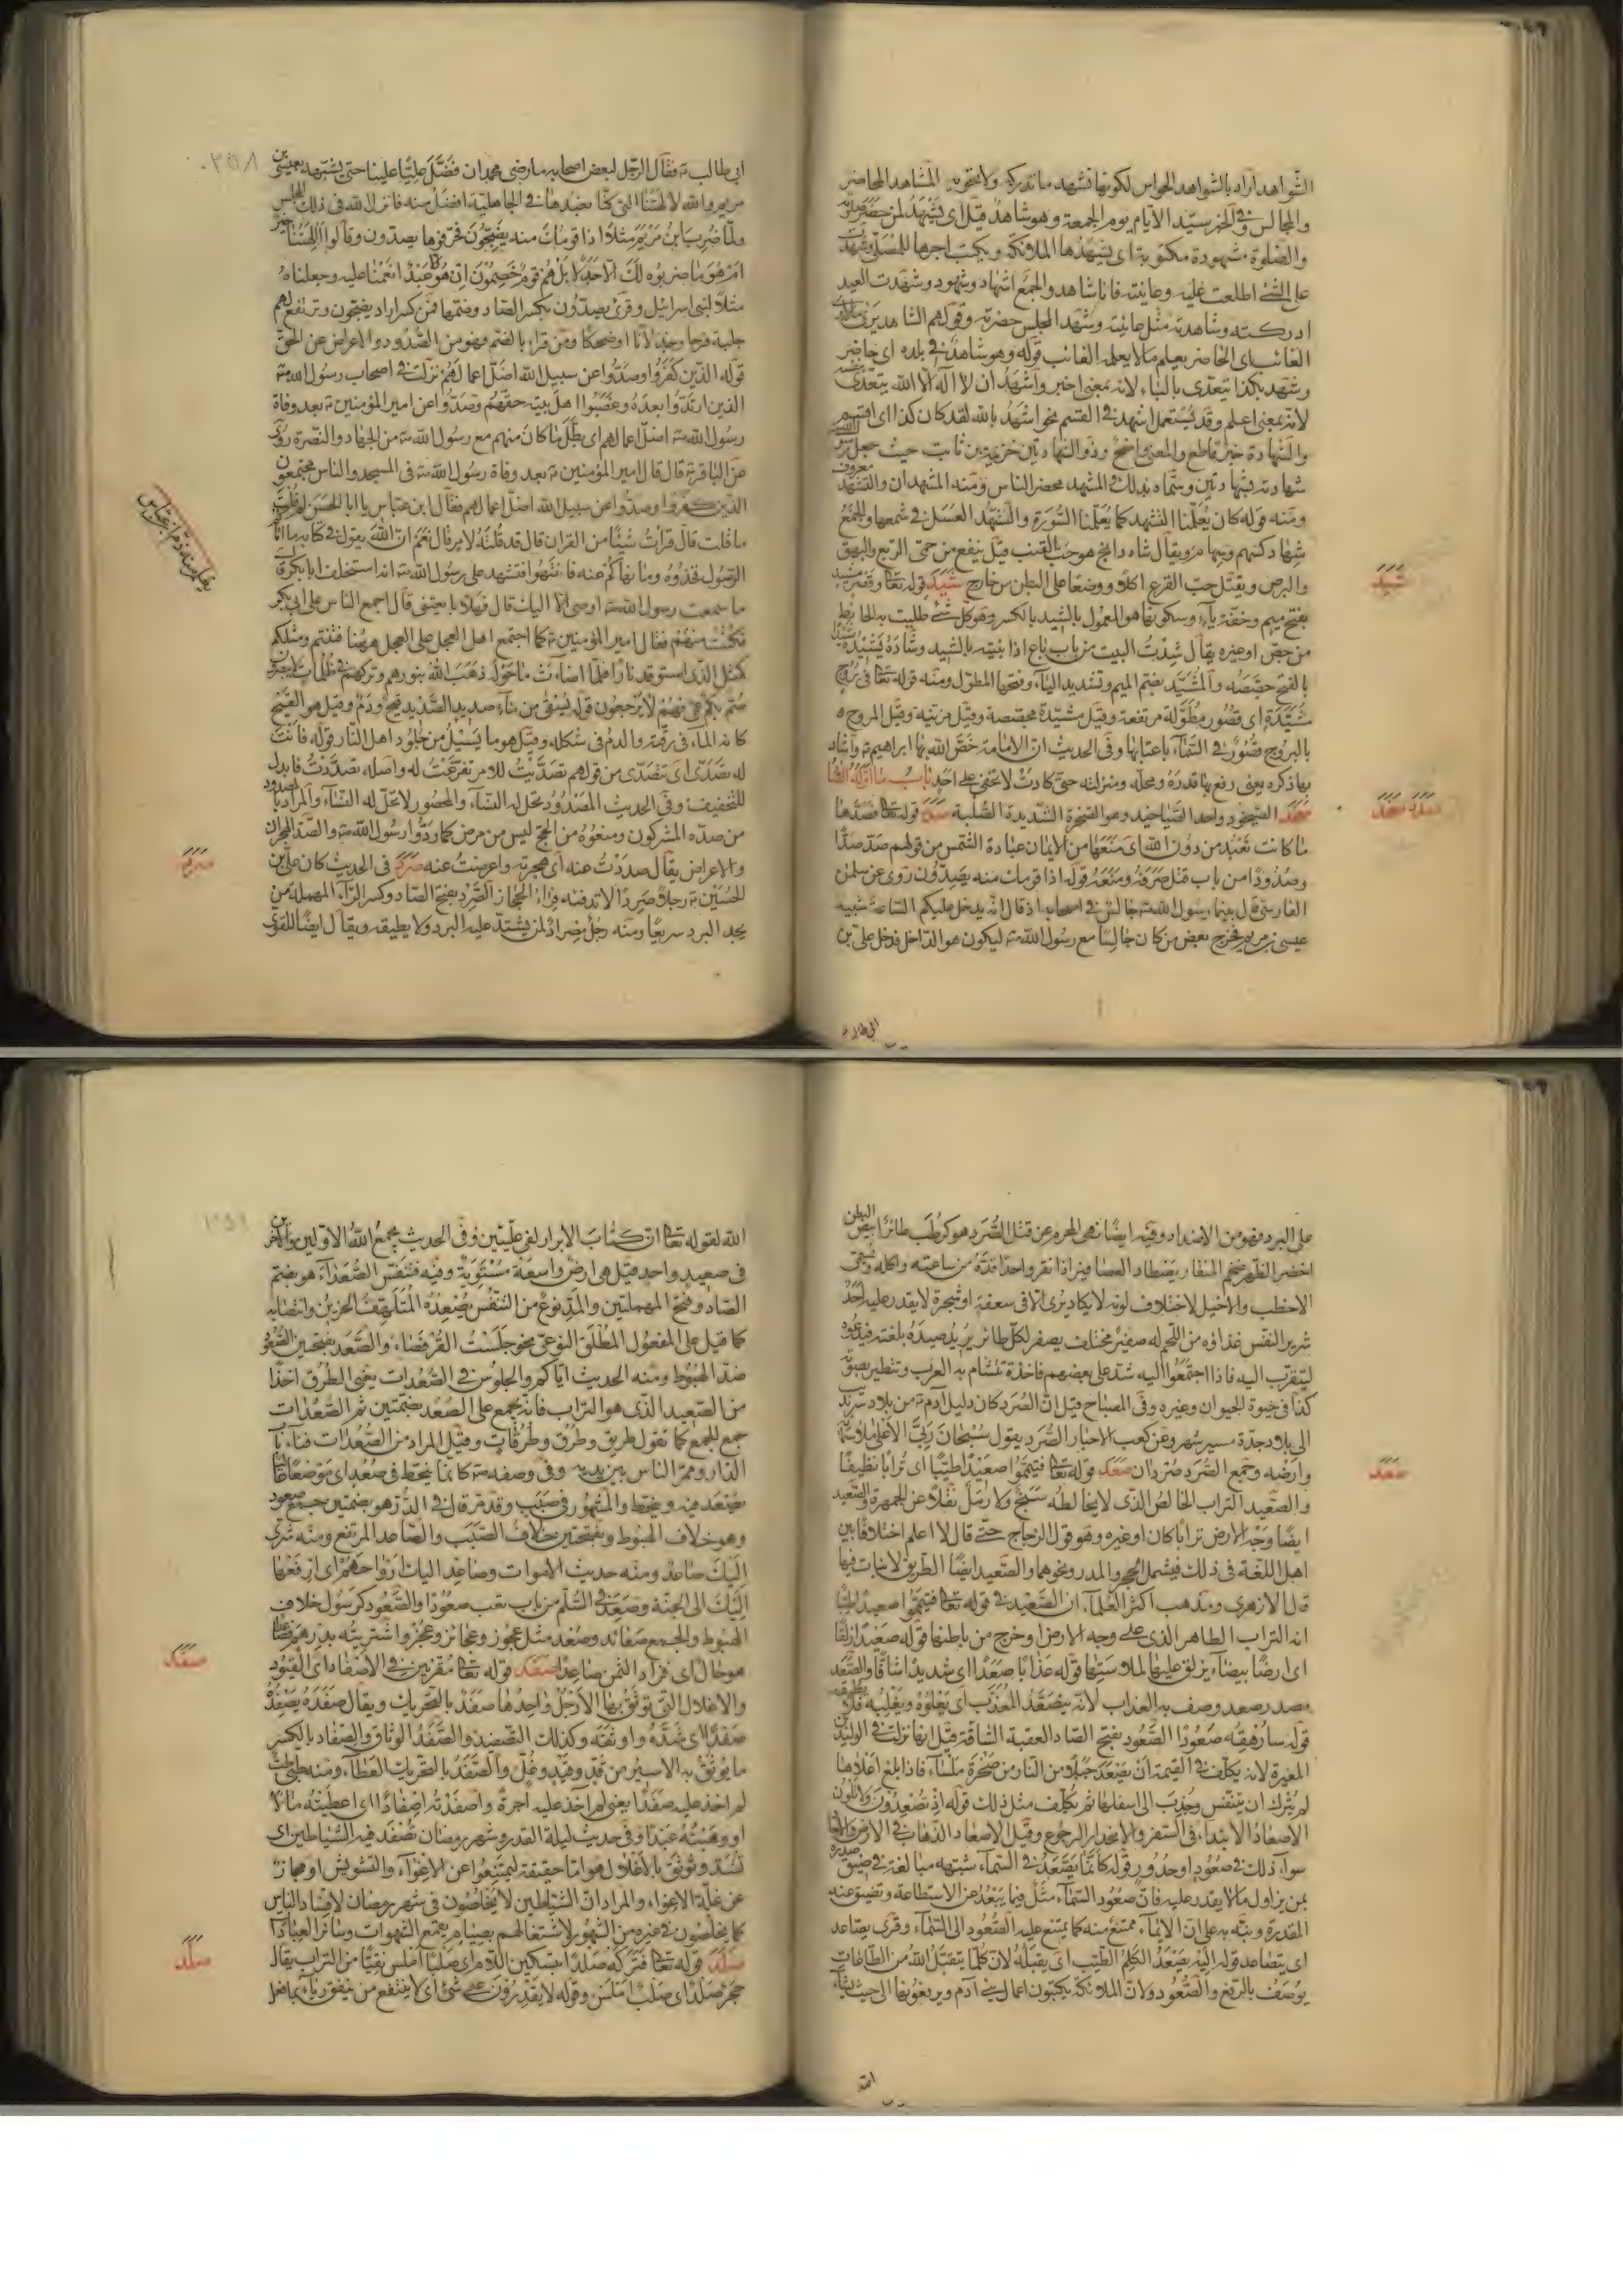 الشواهد اراد بالشواهد الحواس لكونها تشهد ما تدركه ولا تحويه المشاهد المحاضر
والمجالس وفي الخبر سيد الايام يوم الجمعة وهو شاهد قيل اي يشهد لمن حضر صلوته
والصلوة مشهودة مكتوبة اي يشهدها الملائكة ويكتب اجرها للمصلي وشهدت
على الشئ اطلعت عليه وعاينته فانا شاهد والجمع اشهاد وشهود وشهدت العيد
ادركته وشاهدته مثل عاينته وشهد المجلس حضرته وقولهم الشاهد يرى ما لا يرى
الغائب اي الحاضر يعلم ما لا يعلمه الغائب قوله وهو شاهد في بلده اي حاضر
وشهد بكذا يتعدى بالباء لانه بمعنى اخبر واشهد ان لا اله الا الله يتعدى بنفسه
لانه بمعنى اعلم وقد يستعمل اشهد في القسم نحو اشهد بالله لقد كان كذا اي اقسم
والشهادة خبر قاطع والمعنى واضح وذو الشهادتين خزيمة بن ثابت حيث جعل رسول الله
شهادته بشهادتين وسماه بذلك والمشهد محضر الناس ومنه المشهدان والتشهد معروف
ومنه قوله كان يعلمنا التشهد كما يعلمنا السورة والشهد العسل في شمعها والجمع
شهاد كسهم وسهام ويقال شاه دانج هو حب القنب قيل ينفع من حمى الربع والبهق
والبرص ويقتل حب القرع اكلا ووضعا على البطن من خارج شيد قوله تعالى وقصر مشيد
بفتح ميم وخفة ياء وسكونها هو المعمول بالشيد بالكسر وهو كل شئ طليت به الحائط
من جص او غيره يقال شدت البيت من باب باع اذا بنيته بالشيد وشاده يشيده شيدا
بالفتح جصصه والمشيد بضم الميم وتشديد الياء وفتحها المطول ومنه قوله تعالى في بروج
مشيدة اي قصور مطولة مرتفعة وقيل مشيدة مجصصة وقيل مزينة وقيل المروج
بالبروج قصور في السماء باعتبارها وفي الحديث ان الامامة خص الله بها ابراهيم واشاد
بها ذكره يعني رفع بها قدره ومحله ومنزلته حتى كادت لا تخفى على احد باب ما اوله الصاد
صخد الصيخود واحد الصياخيد وهو الصخرة الشديدة الصلبة صدد قوله تعالى فصدها
ما كانت تعبد من دون الله اي منعها من الايمان عبادة الشمس من قولهم صد صدا
وصدودا من باب قتل صرفه ومنعه قوله اذا قومك منه يصدون روى عن سلمن
الفارسي قال بينما رسول الله جالس في اصحابه اذ قال انه يدخل عليكم الساعة شبيه
عيسى بن مريم فخرج بعض من كان جالسا مع رسول الله ليكون هو الداخل فدخل علي بن
ابي طالب
شيد
صدد صخد
ابي طالب فقال الرجل لبعض اصحابه ما رضي محمد ان فضل عليا علينا حتى يشبهه بعيسى بن
مريم والله لالهتنا التي كنا نعبدها في الجاهلية افضل منه فانزل الله في ذلك المجلس
ولما ضرب ابن مريم مثلا اذا قومك منه يضجون فحرفوها يصدون وقالوا االهتنا خير
ام هو ما ضربوه لك الا جدلا بل هم قوم خصمون ان هو الا عبد انعمنا عليه وجعلناه
مثلا لبني اسرائيل وقرئ يصدون بكسر الصاد وضمها فمن كسر اراد يضجون وترتفع لهم
جلبة فرحا وجذلانا وضحكا ومن قرء بالضم فهو من الصدود والاعراض عن الحق
قوله الذين كفروا وصدوا عن سبيل الله اضل اعمالهم نزلت في اصحاب رسول الله
الذين ارتدوا بعده وغصبوا اهل بيته حقهم وصدوا عن امير المؤمنين بعد وفاة
رسول الله اضل اعمالهم اي بطل ما كان منهم مع رسول الله من الجهاد والنصرة روى
عن الباقر قال قال امير المؤمنين بعد وفاة رسول الله في المسجد والناس مجتمعون
الذين كفروا وصدوا عن سبيل الله اضل اعمالهم فقال ابن عباس يا ابا الحسن لم قلت
ما قلت قال قرأت شيئا من القران قال قد قلته لامر قال نعم ان الله يقول في كتابه ما اتاكم
الرسول فخذوه وما نهاكم عنه فانتهوا فتشهد على رسول الله انه استخلف ابا بكر قال
ما سمعت رسول الله اوصى الا اليك قال فهلا بايعتني قال اجمع الناس على ابي بكر
فكنت منهم فقال امير المؤمنين كما اجتمع اهل العجل على العجل ههنا فتنتم ومثلكم
كمثل الذي استوقد نارا فلما اضاءت ما حوله ذهب الله بنورهم وتركهم في ظلمات لا يبصرون
صم بكم عمي فهم لا يرجعون قوله يسقى من ماء صديد الصديد قيح ودم وقيل هو القيح
كانه الماء في رقته والدم في شكله وقيل هو ما يسيل من جلود اهل النار قوله فانت
له تصدى اي تتصدى من قولهم تصديت للامر تفرغت له واصله تصددت فابدل
للتخفيف وفي الحديث المصدود تحل له النساء والمحصور لا تحل له النساء والمراد بالمصدود
من صده المشركون ومنعوه من الحج ليس من مرض كما ردوا رسول الله والصد الهجران
والاعراض يقال صددت عنه اي هجرته واعرضت عنه صرد في الحديث كان علي بن
الحسين رجلا صردا لا تدفئه فراء الحجاز الصرد بفتح الصاد وكسر الراء المهملة من
يجد البرد سريعا ومنه رجل مصراد لمن يشتد عليه البرد ولا يطيقه ويقال ايضا للقوي
صرد
على البرد فهو من الاضداد وفيه ايضا نهى المحرم عن قتل الصرد هو كرطب طائر ابيض البطن
اخضر الظهر ضخم المنقار يصطاد العصافير اذا نقر واحدا قده من ساعته واكله ويسمى
الاخطب والاخيل لاختلاف لونه لا يكاد يرى الا في سعفة او شجرة لا يقدر عليه احد
شرير النفس غذاؤه من اللحم له صفير مختلف يصفر لكل طائر يريد صيده بلغته فيدعوه
ليتقرب اليه فاذا اجتمعوا اليه شد على بعضهم فاخذه تتشام به العرب وتتطير بصوته
كذا في حيوة الحيوان وغيره وفي المصباح قيل ان الصرد كان دليل آدم من بلاد سرنديب
الى بلاد جدة مسير شهر وعن كعب الاحبار الصرد يقول سبحان ربي الاعلى ملاء سمائه
وارضه وجمع الصرد صردان صعد قوله تعالى فتيمموا صعيدا طيبا اي ترابا نظيفا
والصعيد التراب الخالص الذي لا يخالطه سبخ ولا رمل نقلا عن الجمهرة والصعيد
ايضا وجه الارض ترابا كان او غيره وهو قول الزجاج حتى قال لا اعلم اختلافا بين
اهل اللغة في ذلك فيشمل الحجر والمدر ونحوهما والصعيد ايضا الطريق لا نبات فيها
قال الازهري ومذهب اكثر العلماء ان الصعيد في قوله تعالى فتيمموا صعيدا طيبا
انه التراب الطاهر الذي على وجه الارض او خرج من باطنها قوله صعيدا زلقا
اي ارضا بيضاء يزلق عليها لملاستها قوله عذابا صعدا اي شديدا شاقا والصعد
مصدر صعد وصف به العذاب لانه يتصعد المعذب اي يعلوه ويغلبه فلا يطيقه
قوله سارهقه صعودا الصعود بفتح الصاد العقبة الشاقة قيل انها نزلت في الوليد بن
المغيرة لانه يكلف في القيمة ان يصعد جبلا من النار من صخرة ملساء فاذا بلغ اعلاها
لم يترك ان يتنفس وجذب الى اسفلها ثم يكلف مثل ذلك قوله اذ تصعدون ولا تلوون
الاصعاد الابتداء في السفر والانحدار الرجوع وقيل الاصعاد الذهاب في الارض
سواء ذلك في صعود او حدور قوله كانما يصعد في السماء شبهه مبالغة في ضيق صدره
بمن يزاول ما لا يقدر عليه فان صعود السماء مثل فيما يبعد عن الاستطاعة وتضيق عنه
المقدرة ونبه به على ان الايمان ممتنع منه كما يمتنع عليه الصعود الى السماء وقرئ يصاعد
اي يتصاعد قوله اليه يصعد الكلم الطيب اي يقبله لان كلما يتقبل الله من الطاعات
يوصف بالرفع والصعود ولان الملائكة يكتبون اعمال بني آدم ويرفعونها الى حيث يشاء
الله
صعد
الله لقوله تعالى ان كتاب الابرار لفي عليين وفي الحديث يجمع الله الاولين والآخرين
في صعيد واحد قيل هي ارض واسعة مستوية وفيه فتنفس الصعداء هو بضم
الصاد وفتح المهملتين والمد نوع من التنفس يصعده المتلهف الحزين وانتصابه
كما قيل على المفعول المطلق النوعي نحو جلست القرفصاء والصعد بفتحتين الصعود
ضد الهبوط ومنه الحديث اياكم والجلوس في الصعدات يعني الطرق اخذا
من الصعيد الذي هو التراب فانه يجمع على الصعد بضمتين ثم الصعدات
جمع الجمع كما تقول طريق وطرق وطرقات وقيل المراد من الصعدات فناء باب
الدار وممر الناس بين يديه وفي وصفه كانما ينحط في صعد اي موضعا عاليا
يصعد فيه وينحط والمشهور في صبب وقد مر قال في الدر هو بضمتين جمع صعود
وهو خلاف الهبوط وبفتحتين خلاف الصبب والصاعد المرتفع ومنه شري
اليك صاعد ومنه حديث الاموات وصاعد اليك ارواحهم اي ارفعها
اليك الى الجنة وصعد في السلم من باب تعب صعودا والصعود كرسول خلاف
الهبوط والجمع صعائد وصعد مثل عجوز وعجائز وعجز واشتريته بدرهم فصاعدا
هو حال اي فزاد الثمن صاعدا صفد قوله تعالى مقرنين في الاصفاد اي القيود
والاغلال التي توثق بها الارجل واحدها صفد بالتحريك ويقال صفده يصفده
صفدا اي شده واوثقه وكذلك التصفيد والصفد الوثاق والصفاد بالكسر
ما يوثق به الاسير من قد وقيد وغل والصفد بالتحريك العطاء ومنه
لم اخذ عليه صفدا يعني لم اخذ عليه اجرة واصفدته اصفادا اي اعطيته مالا
او وهبته عبدا وفي حديث ليلة القدر وشهر رمضان تصفد فيه الشياطين اي
تشد وتوثق بالاغلال هو اما حقيقة ليمتنعوا عن الاغواء والتشويش او مجاز
عن قلة الاغواء والمراد ان الشياطين لا يخلصون في شهر رمضان لافساد الناس
كما يخلصون في غيره من الشهور لاشتغالهم بصيام يقمع الشهوات وسائر العبادات
صلد قوله تعالى فتركه صلدا بتسكين اللام اي صلبا املس نقيا من التراب يقال
حجر صلد اي صلب املس وقوله لا يقدرون على شئ اي لا ينتفع من ينفق رياء بما فعل
صفد
صلد